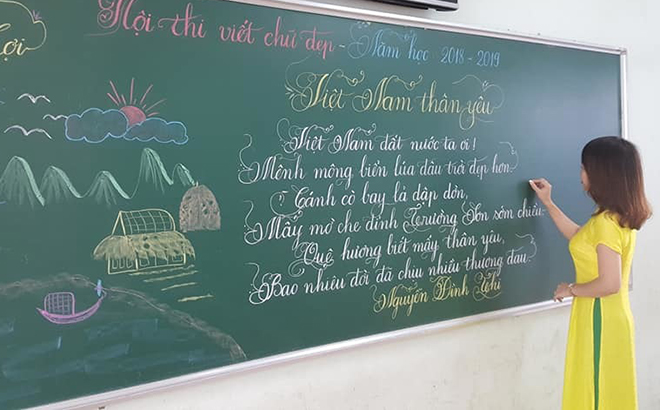 ợi
Hội thi viết chữ đẹp - Năm học 2018 - 2019
Việt Nam thân yêu
Việt Nam đất nước ta ơi!
Mênh mông biển lúa đâu trời đẹp hơn
Cánh cò bay lả dập dờn,
Mây mờ che đỉnh Trường Sơn sớm chiều.
Quê hương biết mấy thân yêu,
Bao nhiêu đời đã chịu nhiều thương đau
Nguyễn Đình Thi